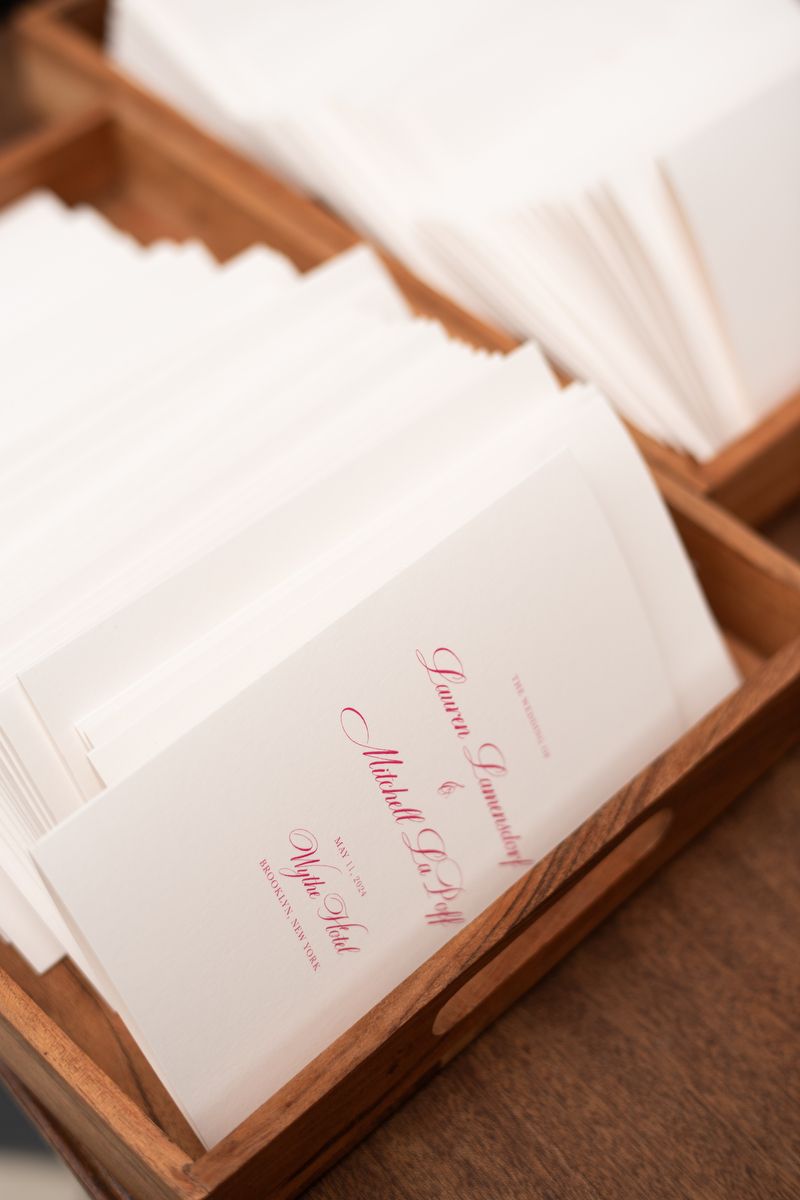 THE WEDDING OF
Lauren Lamensdorf
&
Mitchell LaPoff
MAY 11, 2024
Wythe Hotel
BROOKLYN, NEW YORK